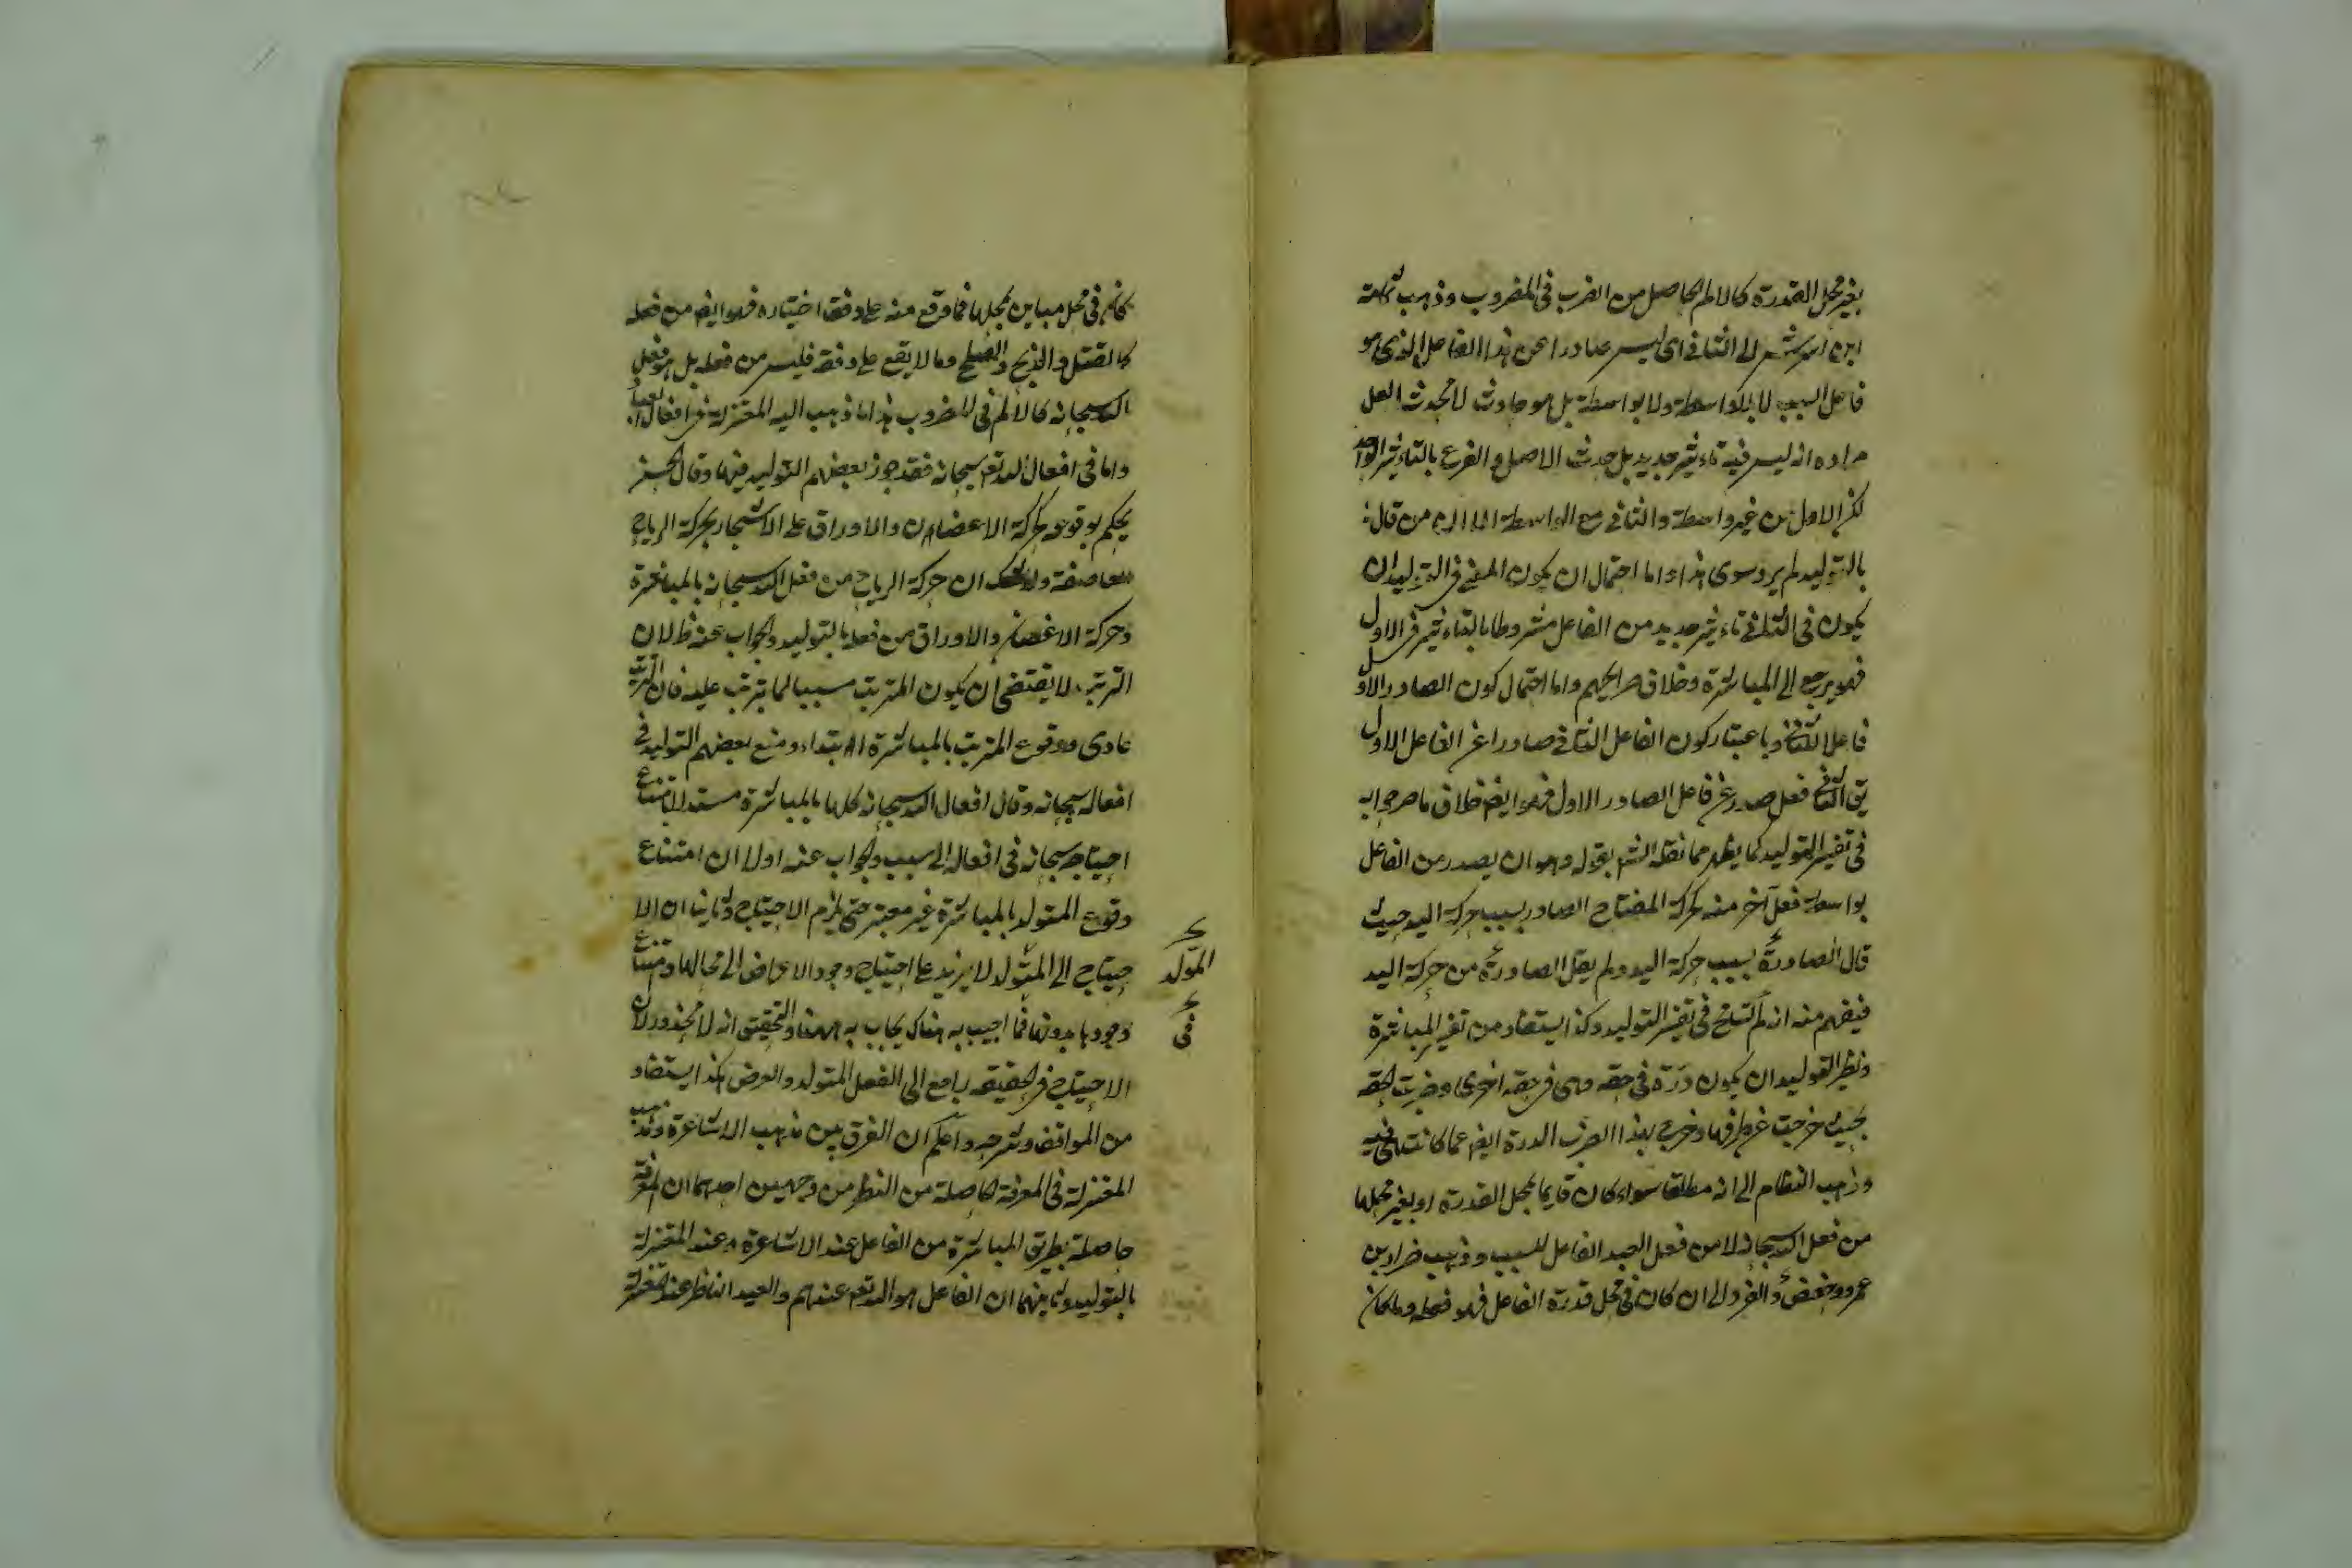 بغير محل القدرة كالالم الحاصل من الضرب فى المضروب وذهب ثمامة
ابن اشرس الى الثانى اى ليس صادرا عن هذا الفاعل الذى هو
فاعل السبب لا بلاواسطة ولا بواسطة بل هو حادث لا محدث لعل
مراده انه ليس فيه تاءثير جديد بل حدث الاصل و الفرع بالتاءثير الواحد
لكن الاول من غير واسطة والثانى مع الواسطة من قال
بالتوليد لم يرد سوى هذا واما احتمال ان يكون المعنى فى التوليد ان
يكون فى الثانى تاءثير جديد من الفاعل مشروطا بالتاءثير فى الاول
فهو يرجع الى المباشرة وخلاف صرايحهم واما احتمال كون الصادر الاول
فاعل الثانى وباعتبار كون الفاعل الثانى صادرا عن الفاعل الاول
يق الثانى فعل صدر عن فاعل الصادر الاول فهو ايض خلاف ما صرحوا به
فى تفسير التوليد كما يظهر مما نقله الش بقوله وهو ان يصدر من الفاعل
بواسطة فعل آخر منه كحركة المفتاح الصادر بسبب حركة اليد حيث
قال الصادرة بسبب حركة اليد ولم يقل الصادرة من حركة اليد
فيفهم منه انه لم فى تفسير التوليد وكذا يستفاد من تفسير المباشرة
ونظير التوليد ان يكون درة فى حقه وهى فى حقه اخرى وضربت الحقه
بحيث خرجت عن ظرفها وخرج بهذا الضرب الدرة ايض عما كانت فيه
وذهب النظام الى انه مطلقا سواء كان قايما بمحل القدرة او بغير محلها
من فعل الله سبحانه لا من فعل العبد الفاعل للسبب وذهب ضرار بن
عمرو وحفص الفرد الى ان كان فى محل قدرة الفاعل فهو فعله وما كان
كائن فى محل مباين لمحلها فما وقع منه على وفق اختياره فهو ايض من فعله
كالقتل و الذبح و القطع وما لا يقع على وفقه فليس من فعله بل هو فعل
الله سبحانه كالالم فى المضروب هذا ما ذهب اليه المعتزلة فى افعال العباد
واما فى افعال الله تع سبحانه فقد جوز بعضهم التوليد فيها وقال الحس
يحكم بوقوع حركة الاغصان والاوراق على الاشجار بحركة الرياح
العاصفة ولا شك ان حركة الرياح من فعل الله سبحانه بالمباشرة
وحركة الاغصان والاوراق من فعله بالتوليد والجواب عنه ظ لان
الترتب لا يقتضى ان يكون المترتب مسببا لما يترتب عليه فان الترتب
عادى ووقوع المترتب بالمباشرة ابتداء ومنع بعضهم التوليد فى
افعاله سبحانه وقال افعال الله سبحانه كلها بالمباشرة مستدلا بامتناع
احتياجه سبحانه فى افعاله الى سبب والجواب عنه اولا ان امتناع
وقوع المتولد بالمباشرة غير معتبر حتى يلزم الاحتياج وثانيا ان الا
حتياج الى المتولد لا يزيد على احتياج وجود الاعراض الى محالها وامتناع
المولد
وجودها بدونها فما اجيب به هناك يجاب به ههنا والتحقيق انه لا محذور لان
فى
الاحتياج فى الحقيقه راجع الى الفعل المتولد والعرض هكذا يستفاد
من المواقف وشرحه واعلم ان الفرق بين مذهب الاشاعرة ومذهب
المعتزلة فى المعرفة الحاصلة من النظر من وجهين احدهما ان المعرفة
حاصلة بطريق المباشرة من الفاعل عند الاشاعرة وعند المعتزلة
بالتوليد وثانيهما ان الفاعل هو الله تع عندهم والعبد الناظر عند المعتزلة